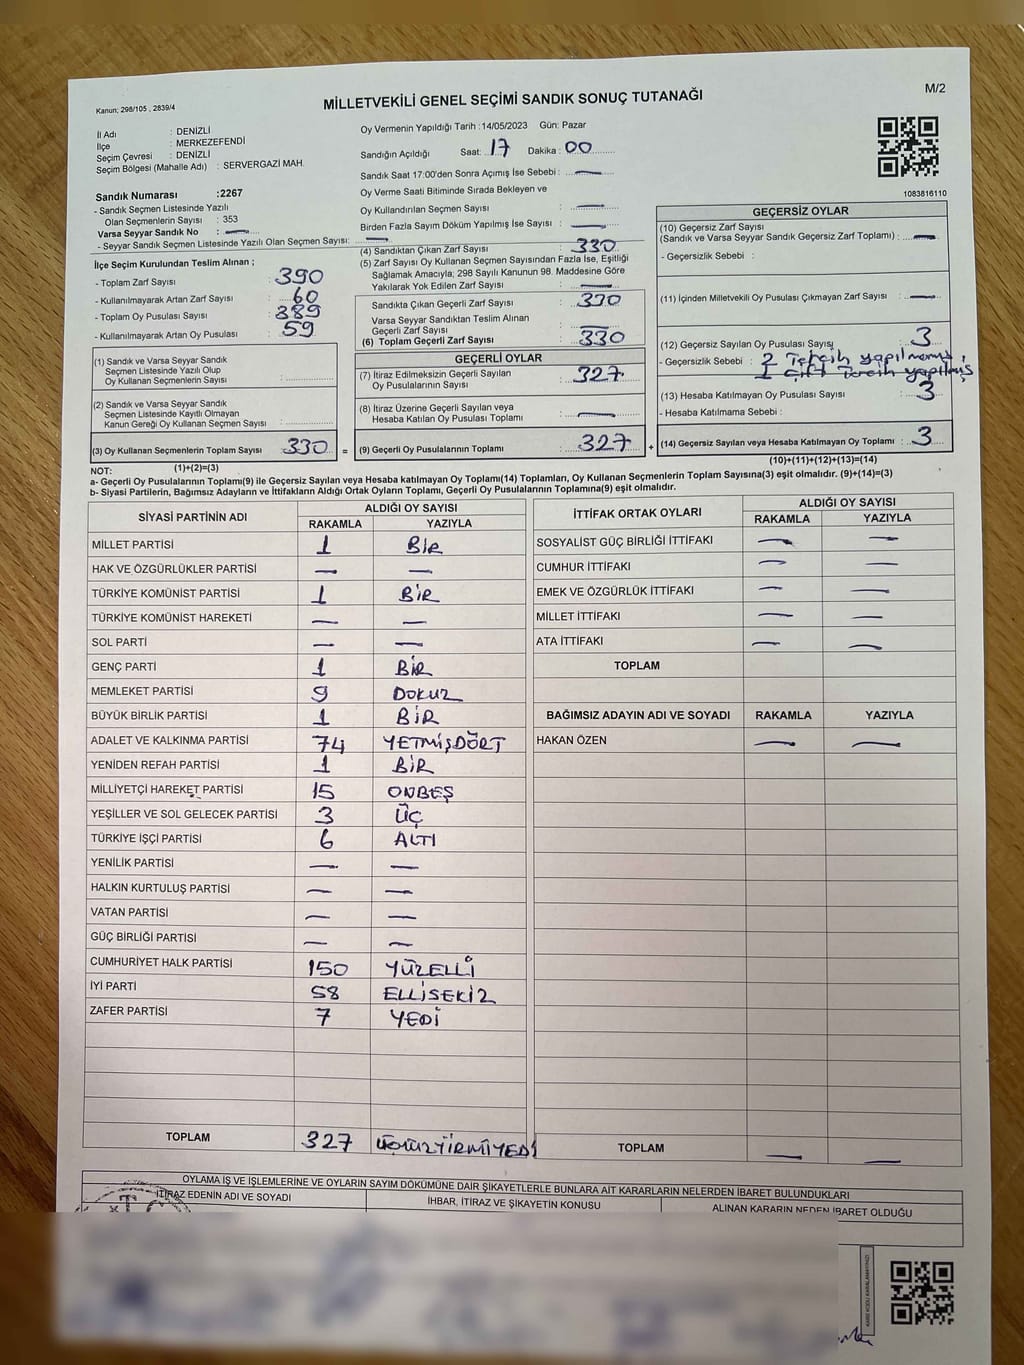 M/2
Kanun; 298/105 , 2839/4
MİLLETVEKİLİ GENEL SEÇİMİ SANDIK SONUÇ TUTANAĞI
İl Adı : DENİZLİ
İlçe : MERKEZEFENDİ
Seçim Çevresi : DENİZLİ
Seçim Bölgesi (Mahalle Adı) : SERVERGAZİ MAH.
Sandık Numarası :2267
- Sandık Seçmen Listesinde Yazılı
Olan Seçmenlerin Sayısı : 353
Varsa Seyyar Sandık No : —
- Seyyar Sandık Seçmen Listesinde Yazılı Olan Seçmen Sayısı: —
Oy Vermenin Yapıldığı Tarih :14/05/2023 Gün: Pazar
Sandığın Açıldığı Saat: 17 Dakika : 00
Sandık Saat 17:00'den Sonra Açımış İse Sebebi : —
Oy Verme Saati Bitiminde Sırada Bekleyen ve
Oy Kullandırılan Seçmen Sayısı : —
Birden Fazla Sayım Döküm Yapılmış İse Sayısı : —
1083816110
İlçe Seçim Kurulundan Teslim Alınan ;
- Toplam Zarf Sayısı : 390
- Kullanılmayarak Artan Zarf Sayısı : 60
- Toplam Oy Pusulası Sayısı : 389
- Kullanılmayarak Artan Oy Pusulası : 59
(1) Sandık ve Varsa Seyyar Sandık
Seçmen Listesinde Yazılı Olup
Oy Kullanan Seçmenlerin Sayısı :
(2) Sandık ve Varsa Seyyar Sandık
Seçmen Listesinde Kayıtlı Olmayan
Kanun Gereği Oy Kullanan Seçmen Sayısı :
(3) Oy Kullanan Seçmenlerin Toplam Sayısı : 330 =
(1)+(2)=(3)
(4) Sandıktan Çıkan Zarf Sayısı : 330
(5) Zarf Sayısı Oy Kullanan Seçmen Sayısından Fazla İse, Eşitliği
Sağlamak Amacıyla; 298 Sayılı Kanunun 98. Maddesine Göre
Yakılarak Yok Edilen Zarf Sayısı : —
Sandıkta Çıkan Geçerli Zarf Sayısı : 330
Varsa Seyyar Sandıktan Teslim Alınan
Geçerli Zarf Sayısı : —
(6) Toplam Geçerli Zarf Sayısı : 330
GEÇERLİ OYLAR
(7) İtiraz Edilmeksizin Geçerli Sayılan
Oy Pusulalarının Sayısı : 327
(8) İtiraz Üzerine Geçerli Sayılan veya
Hesaba Katılan Oy Pusulası Toplamı : —
(9) Geçerli Oy Pusulalarının Toplamı : 327 +
GEÇERSİZ OYLAR
(10) Geçersiz Zarf Sayısı
(Sandık ve Varsa Seyyar Sandık Geçersiz Zarf Toplamı) : —
- Geçersizlik Sebebi :
(11) İçinden Milletvekili Oy Pusulası Çıkmayan Zarf Sayısı : —
(12) Geçersiz Sayılan Oy Pusulası Sayısı : 3
- Geçersizlik Sebebi : 2 tercih yapılmamış,
1 çift tercih yapılmış
(13) Hesaba Katılmayan Oy Pusulası Sayısı : 3
- Hesaba Katılmama Sebebi :
(14) Geçersiz Sayılan veya Hesaba Katılmayan Oy Toplamı : 3
(10)+(11)+(12)+(13)=(14)
NOT:
a- Geçerli Oy Pusulalarının Toplamı(9) ile Geçersiz Sayılan veya Hesaba katılmayan Oy Toplamı(14) Toplamları, Oy Kullanan Seçmenlerin Toplam Sayısına(3) eşit olmalıdır. (9)+(14)=(3)
b- Siyasi Partilerin, Bağımsız Adayların ve İttifakların Aldığı Ortak Oyların Toplamı, Geçerli Oy Pusulalarının Toplamına(9) eşit olmalıdır.
SİYASİ PARTİNİN ADI ALDIĞI OY SAYISI
RAKAMLA YAZIYLA
MİLLET PARTİSİ 1 BİR
HAK VE ÖZGÜRLÜKLER PARTİSİ — —
TÜRKİYE KOMÜNİST PARTİSİ 1 BİR
TÜRKİYE KOMÜNİST HAREKETİ — —
SOL PARTİ — —
GENÇ PARTİ 1 BİR
MEMLEKET PARTİSİ 9 DOKUZ
BÜYÜK BİRLİK PARTİSİ 1 BİR
ADALET VE KALKINMA PARTİSİ 74 YETMİŞDÖRT
YENİDEN REFAH PARTİSİ 1 BİR
MİLLİYETÇİ HAREKET PARTİSİ 15 ONBEŞ
YEŞİLLER VE SOL GELECEK PARTİSİ 3 ÜÇ
TÜRKİYE İŞÇİ PARTİSİ 6 ALTI
YENİLİK PARTİSİ — —
HALKIN KURTULUŞ PARTİSİ — —
VATAN PARTİSİ — —
GÜÇ BİRLİĞİ PARTİSİ — —
CUMHURİYET HALK PARTİSİ 150 YÜZELLİ
İYİ PARTİ 58 ELLİSEKİZ
ZAFER PARTİSİ 7 YEDİ
TOPLAM 327 ÜÇYÜZYİRMİYEDİ
İTTİFAK ORTAK OYLARI ALDIĞI OY SAYISI
RAKAMLA YAZIYLA
SOSYALİST GÜÇ BİRLİĞİ İTTİFAKI — —
CUMHUR İTTİFAKI — —
EMEK VE ÖZGÜRLÜK İTTİFAKI — —
MİLLET İTTİFAKI — —
ATA İTTİFAKI — —
TOPLAM
BAĞIMSIZ ADAYIN ADI VE SOYADI RAKAMLA YAZIYLA
HAKAN ÖZEN — —
TOPLAM — —
OYLAMA İŞ VE İŞLEMLERİNE VE OYLARIN SAYIM DÖKÜMÜNE DAİR ŞİKAYETLERLE BUNLARA AİT KARARLARIN NELERDEN İBARET BULUNDUKLARI
İTİRAZ EDENİN ADI VE SOYADI İHBAR, İTİRAZ VE ŞİKAYETİN KONUSU ALINAN KARARIN NEDEN İBARET OLDUĞU
T.C.